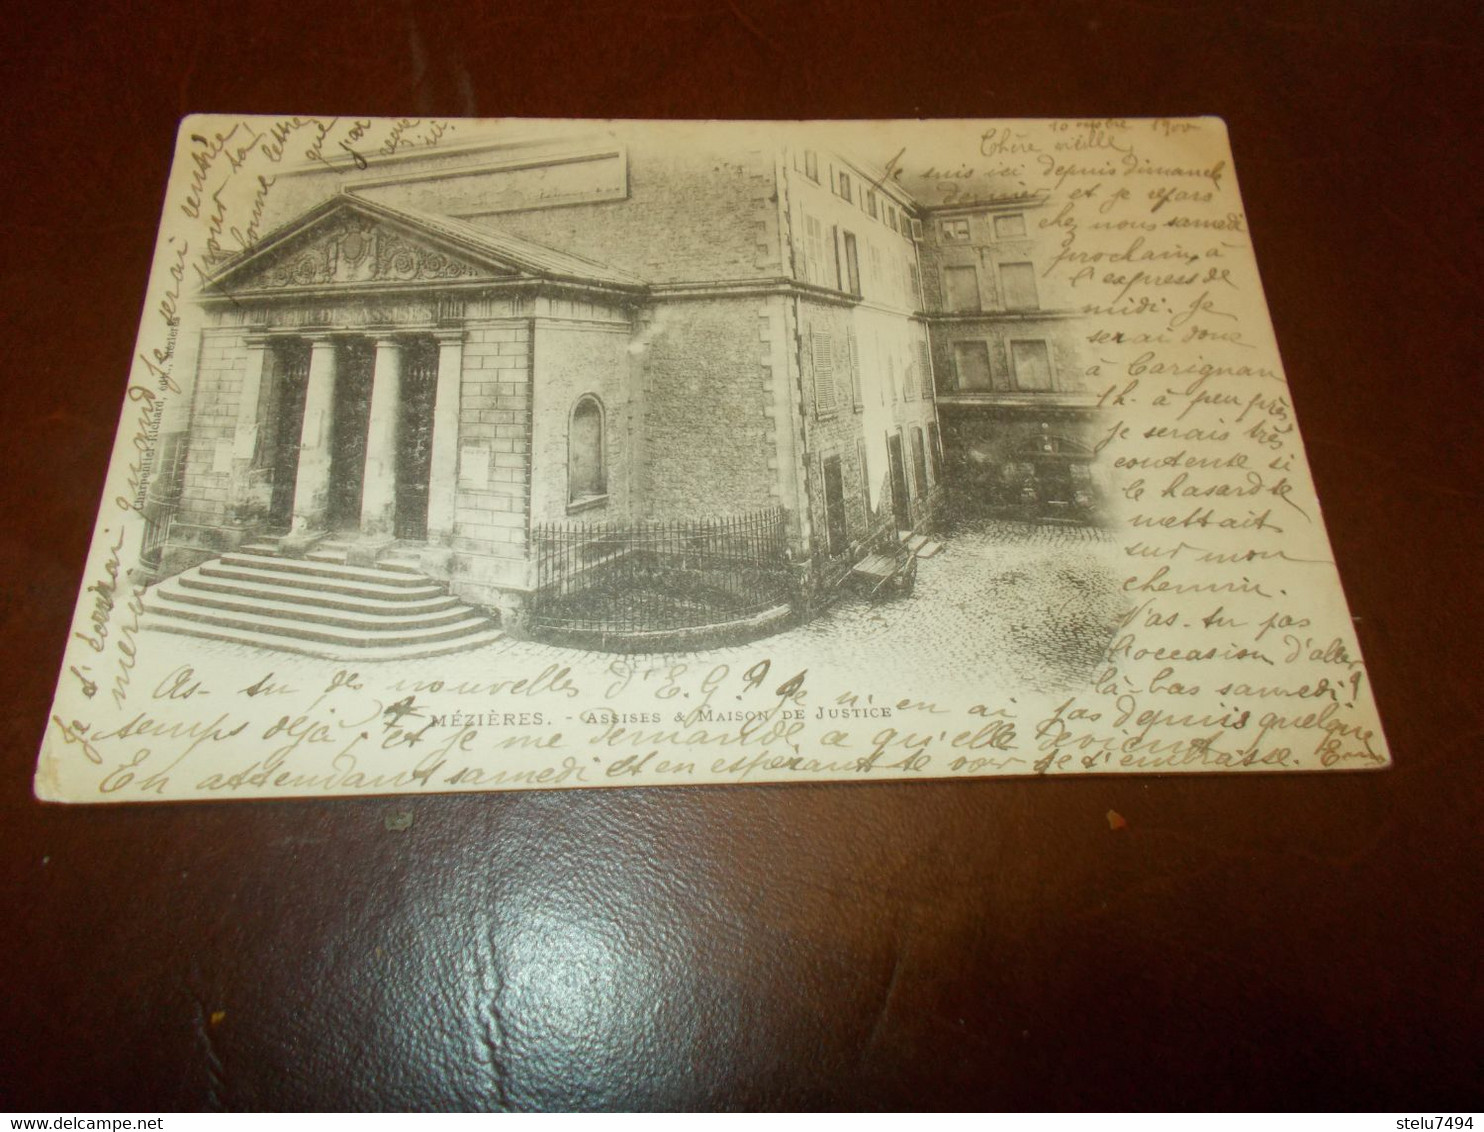 1900
Chère vieille,
Je suis ici depuis dimanche
dernier et je repars
chez nous samedi
prochain, à
l'express de
midi. Je
serai donc
à Carignan
1h. à peu près
Je serais très
contente si
le hasard te
mettait
sur mon
chemin.
N'as-tu pas
l'occasion d'aller
là-bas samedi ?
As-tu des nouvelles d'E. G. ? Je n'en ai pas depuis quelque
temps déjà et je me demande ce qu'elle devient
En attendant samedi et en espérant te voir je t'embrasse.
Je t'écrirai quand je serai rentrée
merci pour ta
bonne lettre
que
j'ai
reçue
ici.
COUR D'ASSISES
Charpentier Richard, édit., Mézières
MÉZIÈRES. - ASSISES & MAISON DE JUSTICE
www.delcampe.net
stelu7494